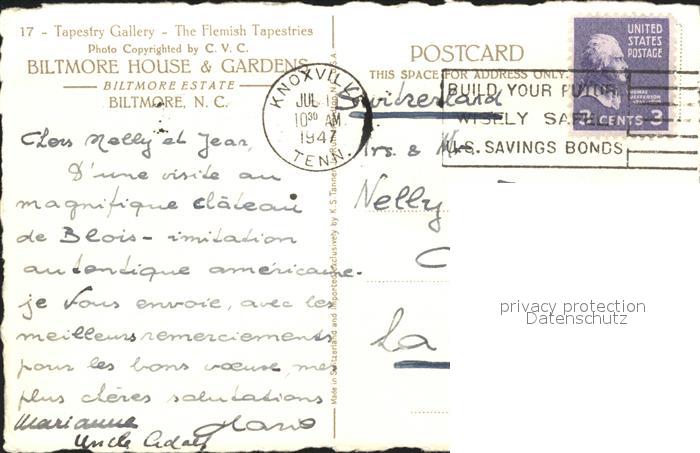 17 - Tapestry Gallery - The Flemish Tapestries
Photo Copyrighted by C. V. C.
BILTMORE HOUSE & GARDENS
BILTMORE ESTATE
BILTMORE, N. C.
POSTCARD
THIS SPACE FOR ADDRESS ONLY.
KNOXVILLE
JUL 1
10 30 AM
1947
TENN.
BUILD YOUR FUTURE
WISELY SAFELY
U.S. SAVINGS BONDS
UNITED
STATES
POSTAGE
3 CENTS 3
Chers Nelly et Jean,
D'une visite au
magnifique château
de Blois - imitation
autentique américaine -
je vous envoie, avec les
meilleurs remerciements
pour les bons vœux, mes
plus chères salutations
Marianne Hans
Uncle Adolf
Switzerland
Mrs. & Mr.
Nelly
La
Made in Switzerland and imported exclusively by K. S. Tanner
privacy protection
Datenschutz